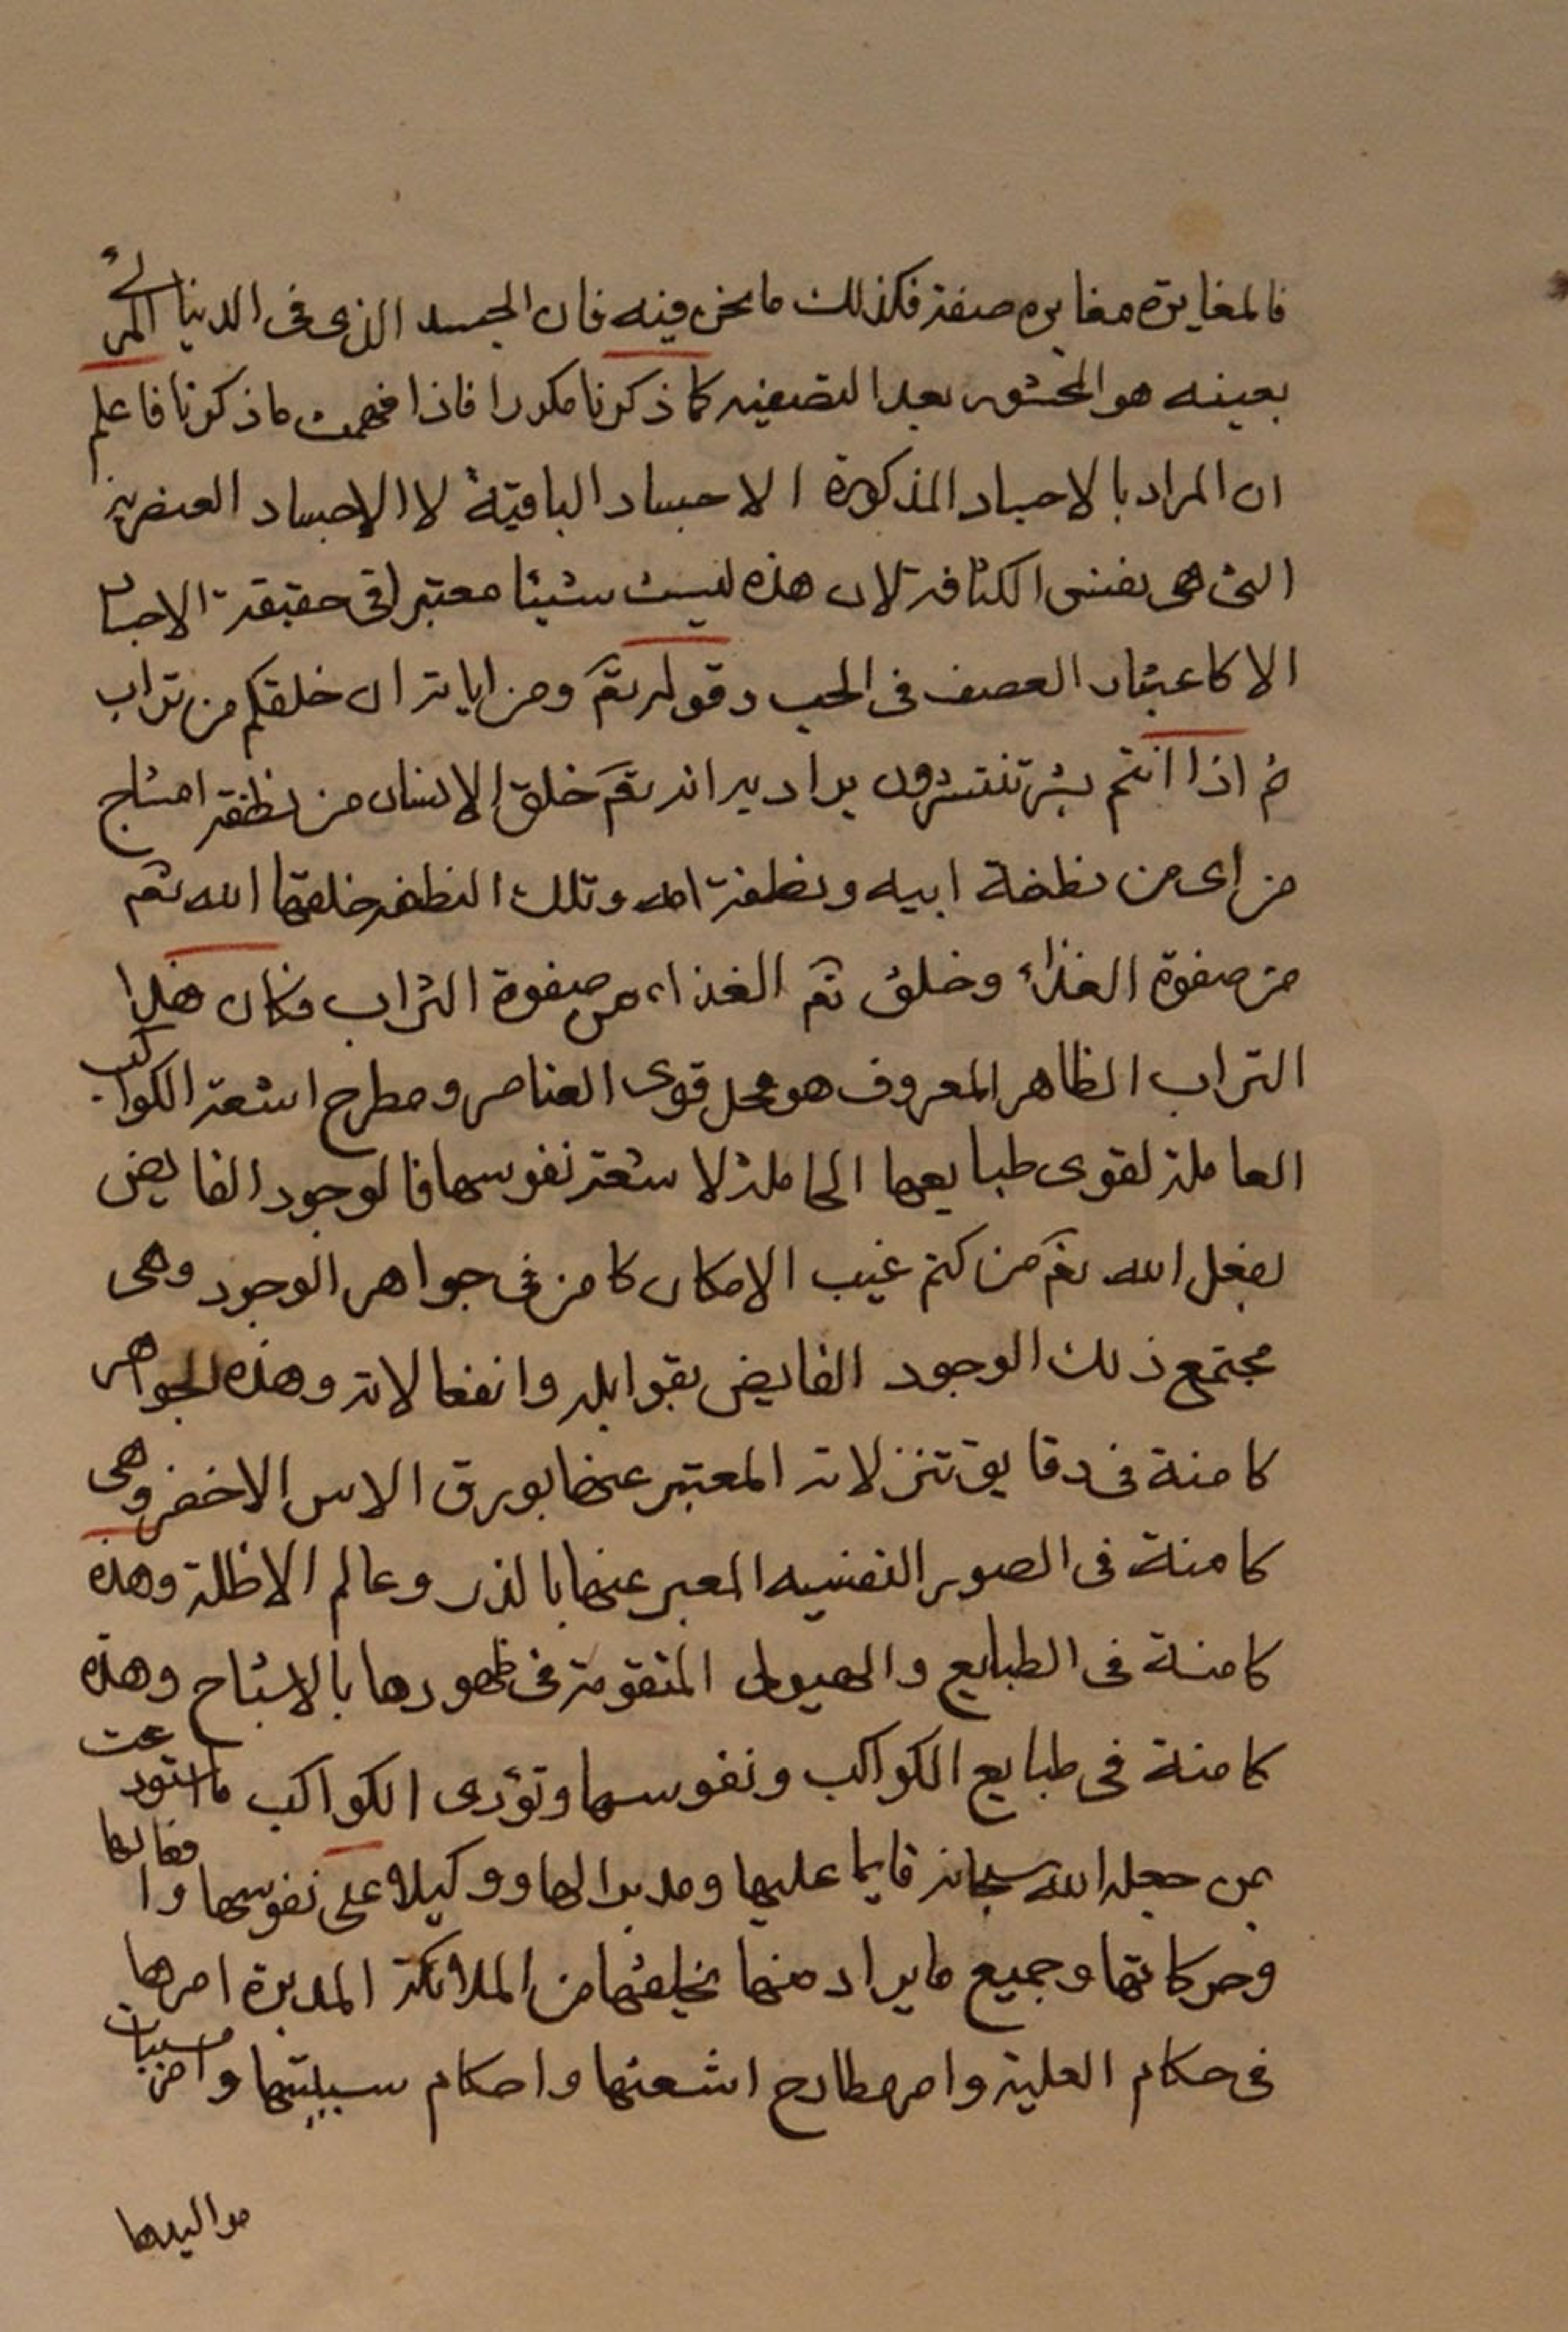 فالمغايرة مغايرة صفة فكذلك ما نحن فيه فان الجسد الذي في الدنيا المرئي
بعينه هو المحشور بعد التصفيه كما ذكرنا مكررا فاذا فهمت ما ذكرنا فاعلم
ان المراد بالاجساد المذكورة الاجساد الباقية لا الاجساد العنصرية
التى هى نفس الكثافة لان هذه ليست شيئا معتبرا في حقيقة الاجساد
الا كاعتبار العصف فى الحب وقوله تع ومن اياته ان خلقكم من تراب
ثم اذا انتم بشر تنتشرون يراد به انه تع خلق الانسان من نطفة امشاج
من اى من نطفة ابيه ونطفة امه وتلك النطفه خلقها الله تع
من صفوة الغذاء وخلق تع الغذاء من صفوة التراب وكان هذا
التراب الظاهر المعروف هو محل قوى العناصر ومطرح اشعة الكواكب
العاملة لقوى طبايعها الحاملة لاشعة نفوسها فالوجود الفايض
بفعل الله تع من كتم غيب الامكان كامن في جواهر الوجود وهى
مجتمع ذلك الوجود الفايض بقوابله وانفعالاته وهذه الجواهر
كامنة فى دقايق تنزلاته المعتبر عنها بورق الاس الاخضر وهى
كامنة فى الصور النفسيه المعبر عنها بالذر وعالم الاظلة وهذه
كامنة فى الطبايع والهيولى المتقومة فى ظهورها بالاشباح وهذه
كامنة فى طبايع الكواكب ونفوسها وتؤدى الكواكب ما استودعت
بمن جعله الله سبحانه قايما عليها ومدبرا لها ووكيلا على نفوسها وافعالها
وحركاتها وجميع ما يراد منها بخلقها من الملائكة المدبرة امرها
فى حكام العلية وامر مطارح اشعتها واحكام سببيتها وامر مسببات
مواليدها